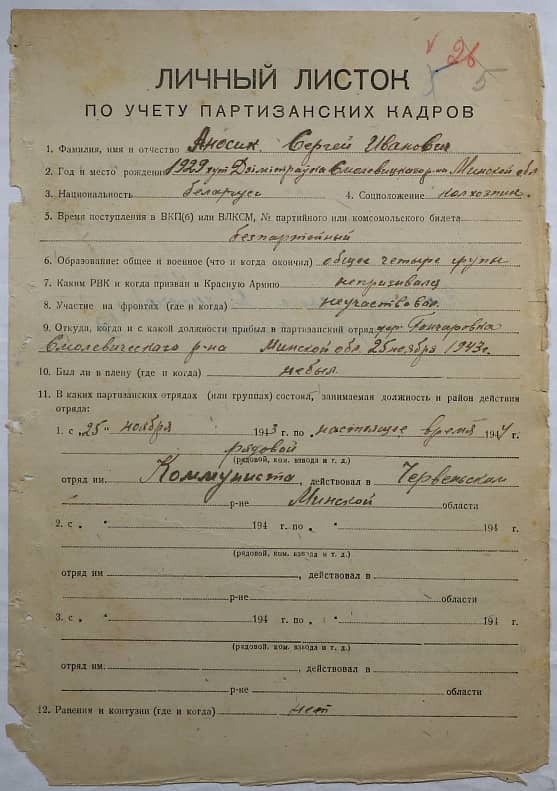 26
5
ЛИЧНЫЙ ЛИСТОК
ПО УЧЕТУ ПАРТИЗАНСКИХ КАДРОВ
1. Фамилия, имя и отчество Аносик Сергей Иванович
2. Год и место рождения 1929 хут Смолевицкага р-на Минской обл
3. Национальность беларус 4. Соцположение колхозник
5. Время поступления в ВКП(б) или ВЛКСМ, № партийного или комсомольского билета
безпартейный
6. Образование: общее и военное (что и когда окончил) общее четыре групы
7. Каким РВК и когда призван в Красную Армию непризывался
8. Участие на фронтах (где и когда) неучаствовал
9. Откуда, когда и с какой должности прибыл в партизанский отряд дер. Гончаровка
Смолевического р-на Минской обл. 25 ноября 1943 г.
10. Был ли в плену (где и когда) небыл
11. В каких партизанских отрядах (или группах) состоял, занимаемая должность и район действия
отряда:
1. с „25" ноября 1943 г. по настоящее время 1944 г.
рядовой
(рядовой, ком. взвода и т. д.)
отряд им. Коммуниста, действовал в Червеньском
р-не Минской области
2. с „ " 194 г. по „ " 194 г.
(рядовой, ком. взвода и т. д.)
отряд им , действовал в
р-не области
3. с „ " 194 г. по „ " 194 г.
(рядовой, ком. взвода и т. д.)
отряд им. , действовал в
р-не области
12. Ранения и контузии (где и когда) нет